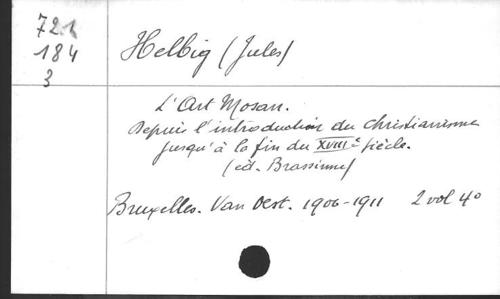 721
184
3
Helbig (Jules)
L'Art Mosan.
Depuis l'introduction du Christianisme
jusqu'à la fin du XVIIIe siècle.
(éd. Brassinne)
Bruxelles. Van Oest. 1906-1911 2 vol 4o